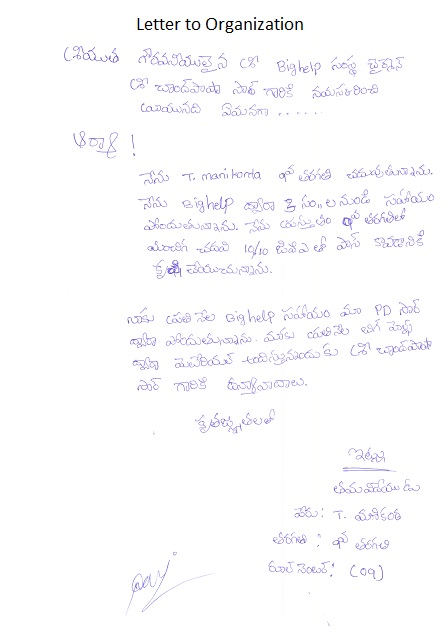 Letter to Organization
శ్రీయుత గౌరవనీయులైన శ్రీ Bighelp సంస్థ చైర్మన్
శ్రీ చాంద్‌పాషా సార్ గారికి నమస్కరించి
వ్రాయునది ఏమనగా ......
ఆర్యా !
నేను T. manikanta 9వ తరగతి చదువుతున్నాను.
నేను Bighelp ద్వారా 3 సం,,ల నుండి సహాయం
పొందుతున్నాను. నేను ప్రస్తుతం 9వ తరగతిలో
మంచిగ చదివి 10/10 జిపిఎ తో పాస్ కావడానికి
కృషి చేయుచున్నాను.
నాకు ప్రతి నెల Bighelp సహాయం మా PD సార్
ద్వారా పొందుతున్నాను. మాకు ప్రతినెల బిగ్ హెల్ప్
ద్వారా మెటీరియల్ అందిస్తున్నందుకు శ్రీ చాంద్‌పాషా
సార్ గారికి ధన్యవాదాలు.
కృతజ్ఞతలతో
ఇట్లు
తమ విధేయుడు
పేరు: T. మణికంఠ
తరగతి : 9వ తరగతి
రూల్ నెంబర్: (09)